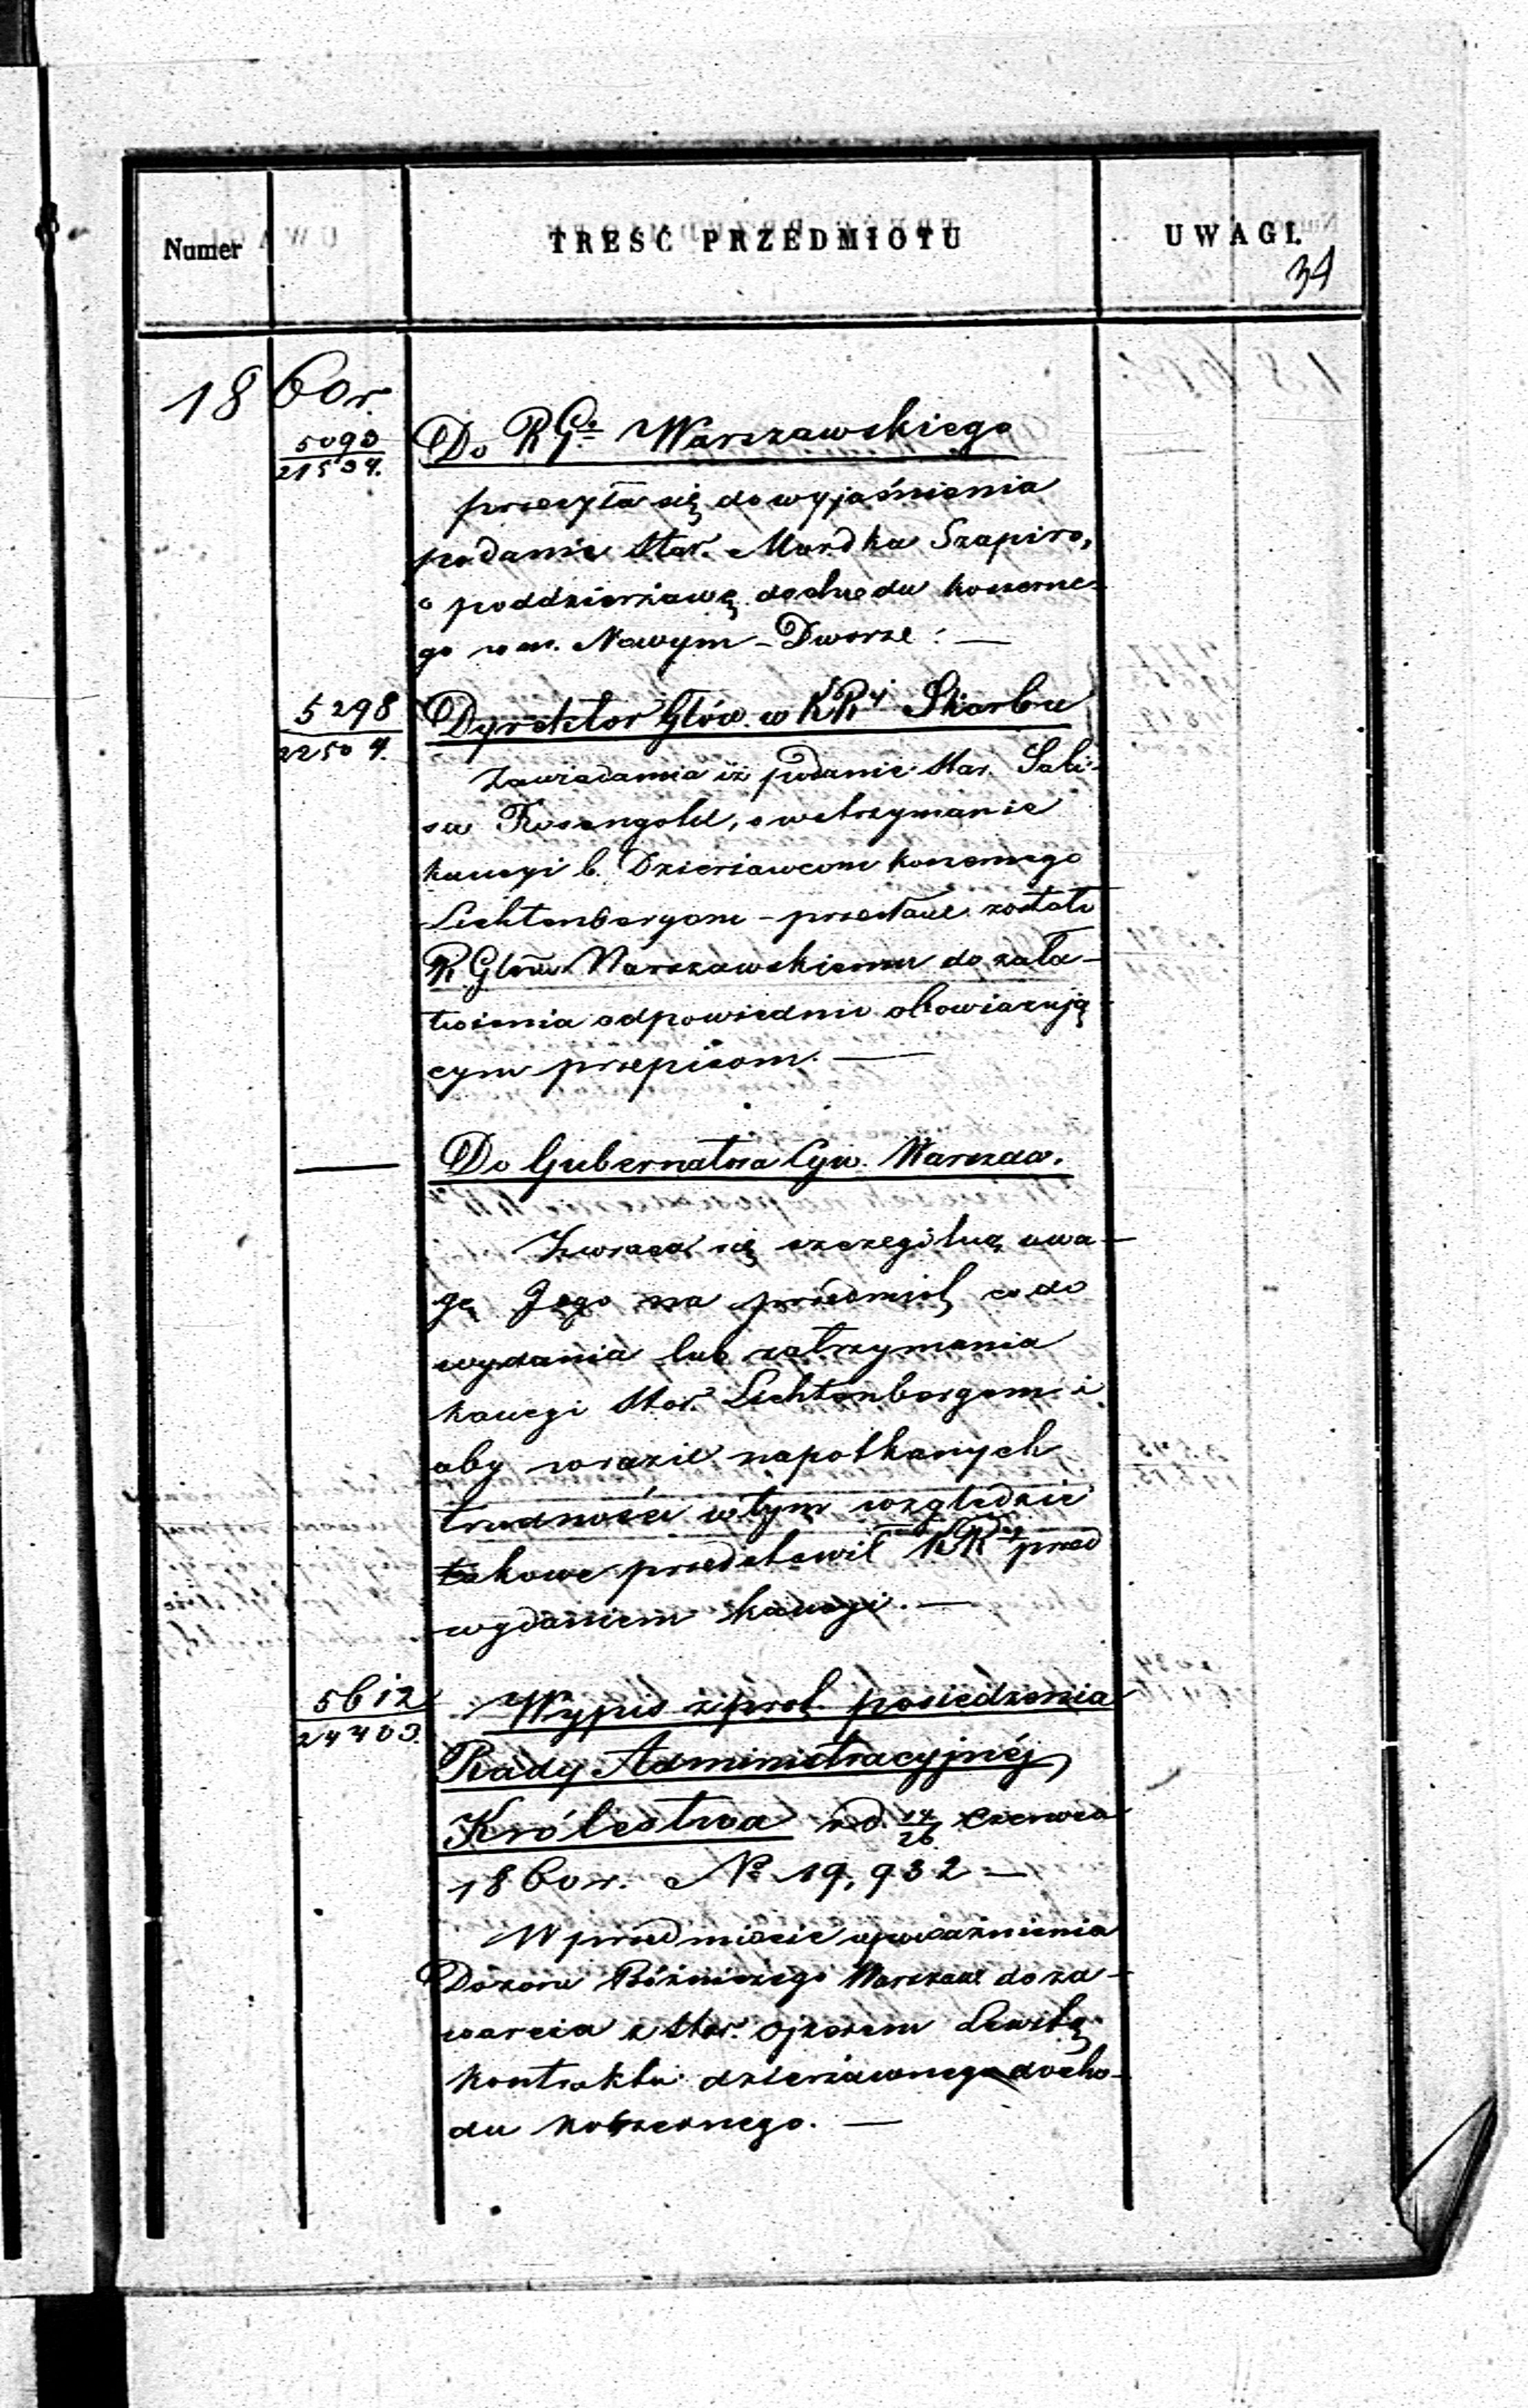 Numer
TREŚĆ PRZEDMIOTU
UWAGI.
34
1860r.
5090
21504.
Do R Go Warszawskiego
przesyła się do wyjaśnienia
podanie Star. Mordka Szapiro,
o poddzierżawę dochodu koszerne-
go w m. Nowym-Dworze. —
5298
22504.
Dyrektor Głów. w KRej Skarbu
Zawiadamia iż podanie Star.
Rosengold, o wstrzymanie
kaucyi b. Dzierżawcom koszernego
Lichtenbergom - przesłane zostało
R. Głow Warszawskiemu do zała-
twienia odpowiednio obowiązują-
cym przepisom. —
Do Gubernatora Cyw. Warszaw.
Zwraca się szczególną uwa-
gę Jego na przedmiot co do
wydania lub zatrzymania
kaucyi Star. Lichtenbergom i
aby w razie napotkanych
trudności w tym względzie
takowe przedstawił KR przed
wydaniem kaucyi. —
5612
24403.
Wypis z prot. posiedzenia
Rady Administracyjnéj
Królestwa z d. 14/26 Czerwca
1860r. No 19,932 —
W przedmiocie upoważnienia
Dozoru Bóżniczego Warszaw do za-
warcia z Star. Lewitą
kontraktu dzierżawnego docho-
du koszernego. —